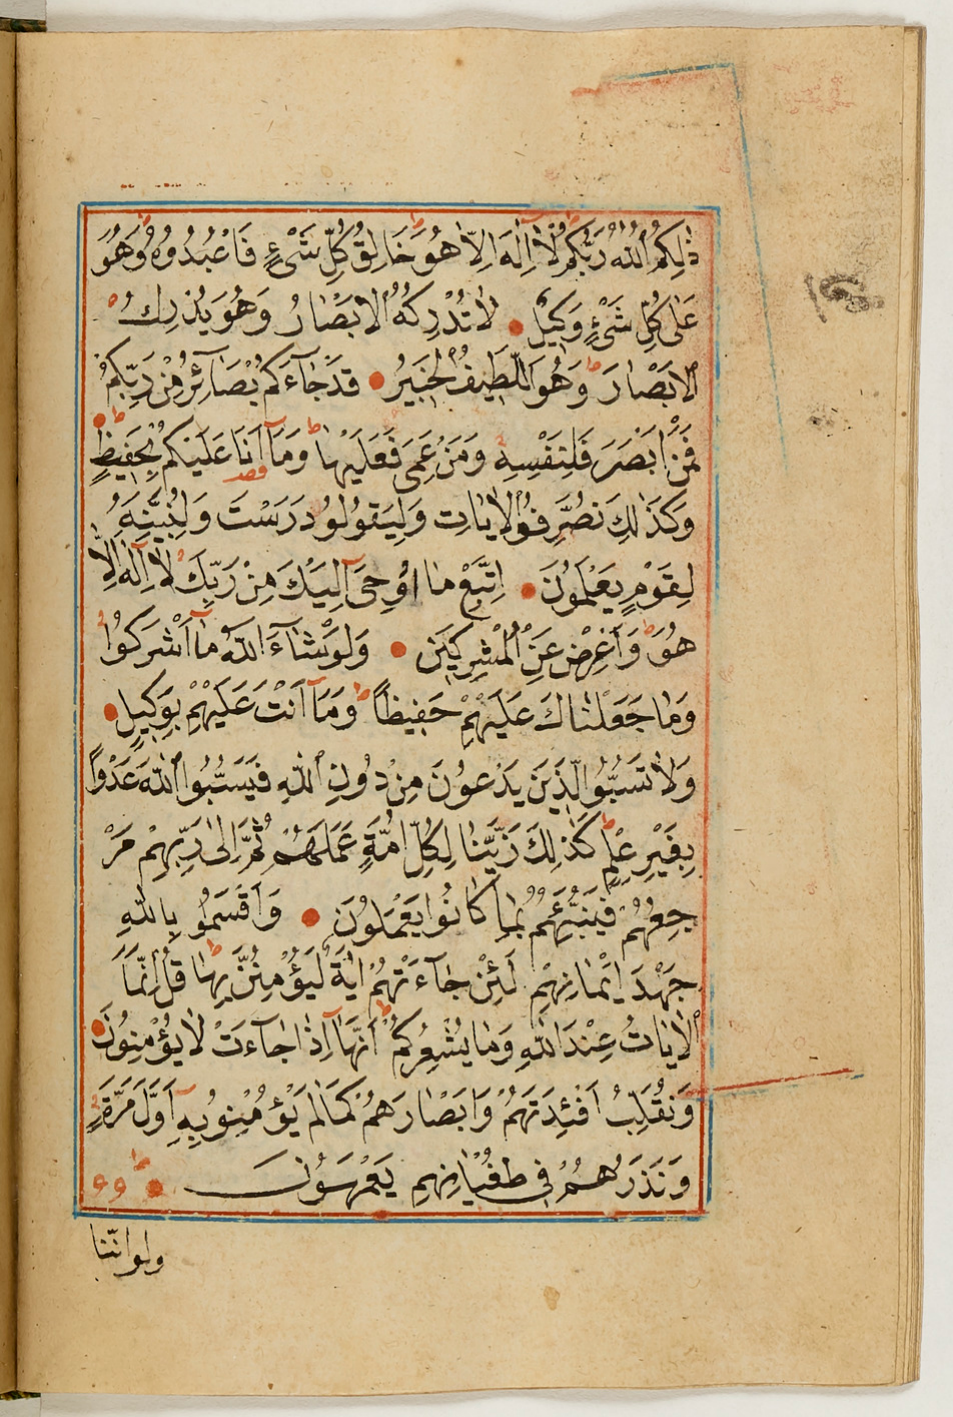 ذٰلِكُمُ اللّٰهُ رَبُّكُمْ لَٓا اِلٰهَ اِلَّا هُوَ خَالِقُ كُلِّ شَیْءٍ فَاعْبُدُوهُ وَهُوَ
عَلٰى كُلِّ شَیْءٍ وَكِيلٌ لَا تُدْرِكُهُ الْاَبْصَارُ وَهُوَ يُدْرِكُ
الْاَبْصَارَ وَهُوَ اللَّطِيفُ الْخَبِيرُ قَدْ جَٓاءَكُمْ بَصَٓائِرُ مِنْ رَبِّكُمْ
فَمَنْ اَبْصَرَ فَلِنَفْسِهِ وَمَنْ عَمِیَ فَعَلَيْهَا وَمَٓا اَنَا عَلَيْكُمْ بِحَفِيظٍ
وَكَذٰلِكَ نُصَرِّفُ الْاٰيَاتِ وَلِيَقُولُوا دَرَسْتَ وَلِنُبَيِّنَهُ
لِقَوْمٍ يَعْلَمُونَ اِتَّبِعْ مَا اُوحِیَ اِلَيْكَ مِنْ رَبِّكَ لَٓا اِلٰهَ اِلَّا
هُوَ وَاَعْرِضْ عَنِ الْمُشْرِكِينَ وَلَوْ شَٓاءَ اللّٰهُ مَٓا اَشْرَكُوا
وَمَا جَعَلْنَاكَ عَلَيْهِمْ حَفِيظًا وَمَٓا اَنْتَ عَلَيْهِمْ بِوَكِيلٍ
وَلَا تَسُبُّوا الَّذِينَ يَدْعُونَ مِنْ دُونِ اللّٰهِ فَيَسُبُّوا اللّٰهَ عَدْوًا
بِغَيْرِ عِلْمٍ كَذٰلِكَ زَيَّنَّا لِكُلِّ اُمَّةٍ عَمَلَهُمْ ثُمَّ اِلٰى رَبِّهِمْ مَرْ
جِعُهُمْ فَيُنَبِّئُهُمْ بِمَا كَانُوا يَعْمَلُونَ وَاَقْسَمُوا بِاللّٰهِ
جَهْدَ اَيْمَانِهِمْ لَئِنْ جَٓاءَتْهُمْ اٰيَةٌ لَيُؤْمِنُنَّ بِهَا قُلْ اِنَّمَا
الْاٰيَاتُ عِنْدَ اللّٰهِ وَمَا يُشْعِرُكُمْ اَنَّهَٓا اِذَا جَٓاءَتْ لَا يُؤْمِنُونَ
وَنُقَلِّبُ اَفْئِدَتَهُمْ وَاَبْصَارَهُمْ كَمَا لَمْ يُؤْمِنُوا بِهِٓ اَوَّلَ مَرَّةٍ
وَنَذَرُهُمْ فِی طُغْيَانِهِمْ يَعْمَهُونَ
ولو اننا